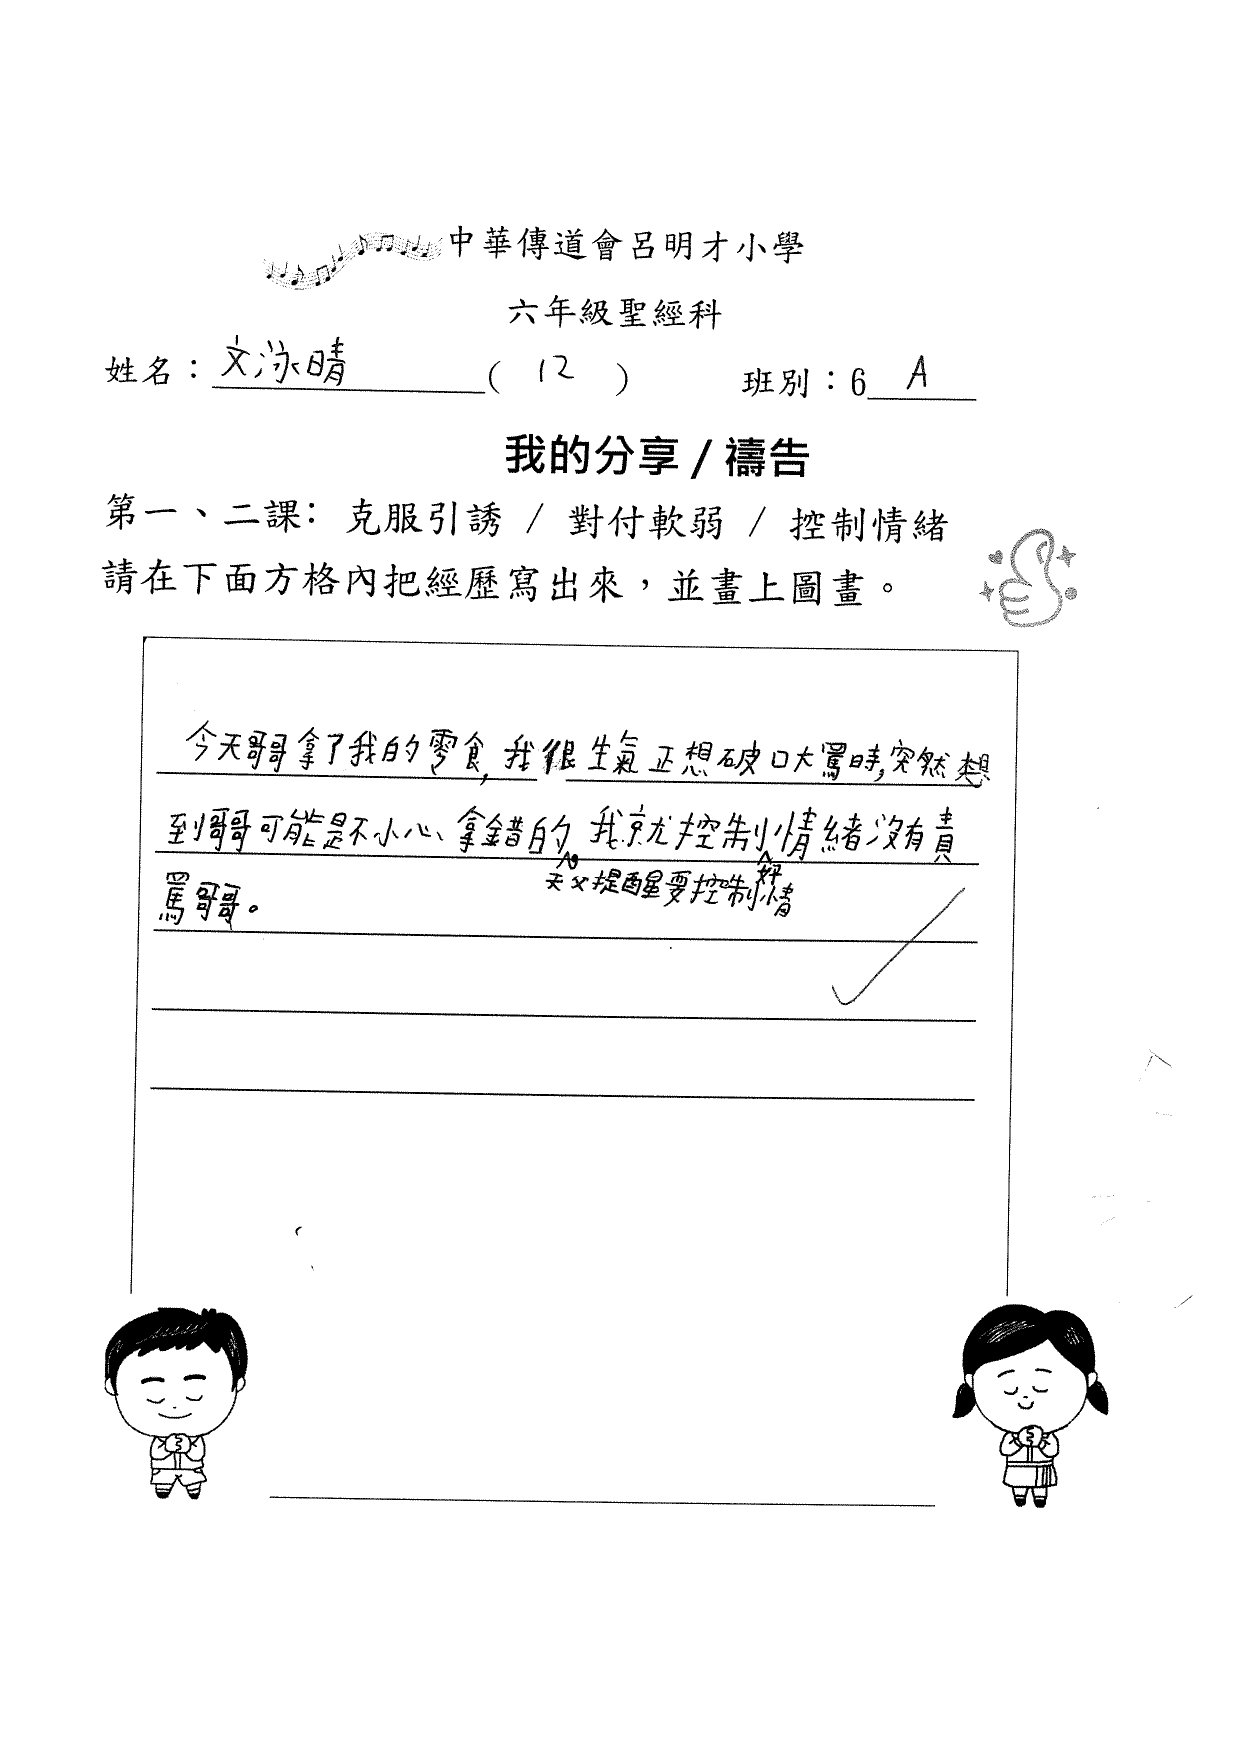 中華傳道會呂明才小學
六年級聖經科
姓名：文泳晴( 12 ) 班別：6 A
我的分享 / 禱告
第一、二課: 克服引誘 / 對付軟弱 / 控制情緒
請在下面方格內把經歷寫出來，並畫上圖畫。
今天哥哥拿了我的零食,我很生氣正想破口大罵時,突然想
到哥哥可能是不小心拿錯的 我就控制情緒沒有責
天父提醒要控制情
好
罵哥哥。